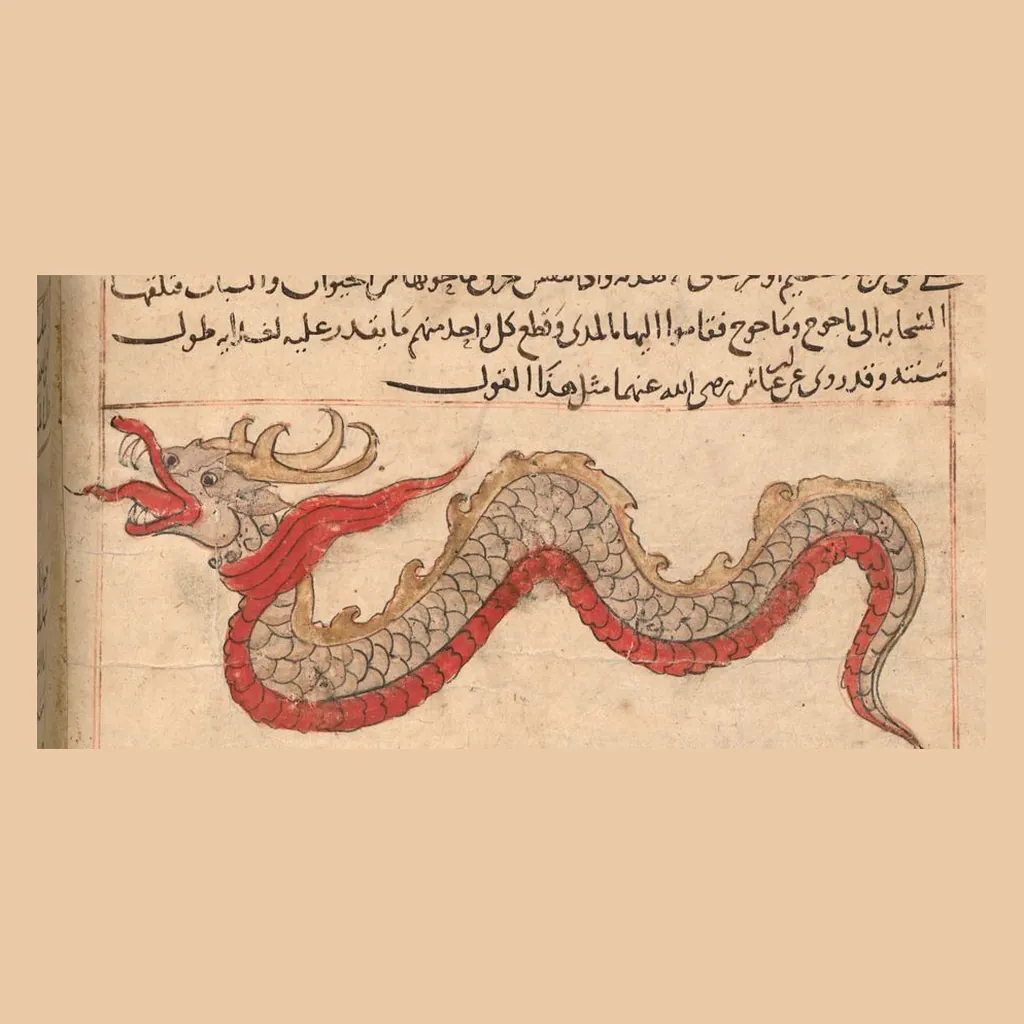 من الحيوان والنبات فتلقها
السحابه الى ياجوج وماجوج فقاموا اليها بالمدى وقطع كل واحد منهم ما يقدر عليه لغذايه طول
سنته وقد روى عن ابن عباس رضى الله عنهما مثل هذا القول